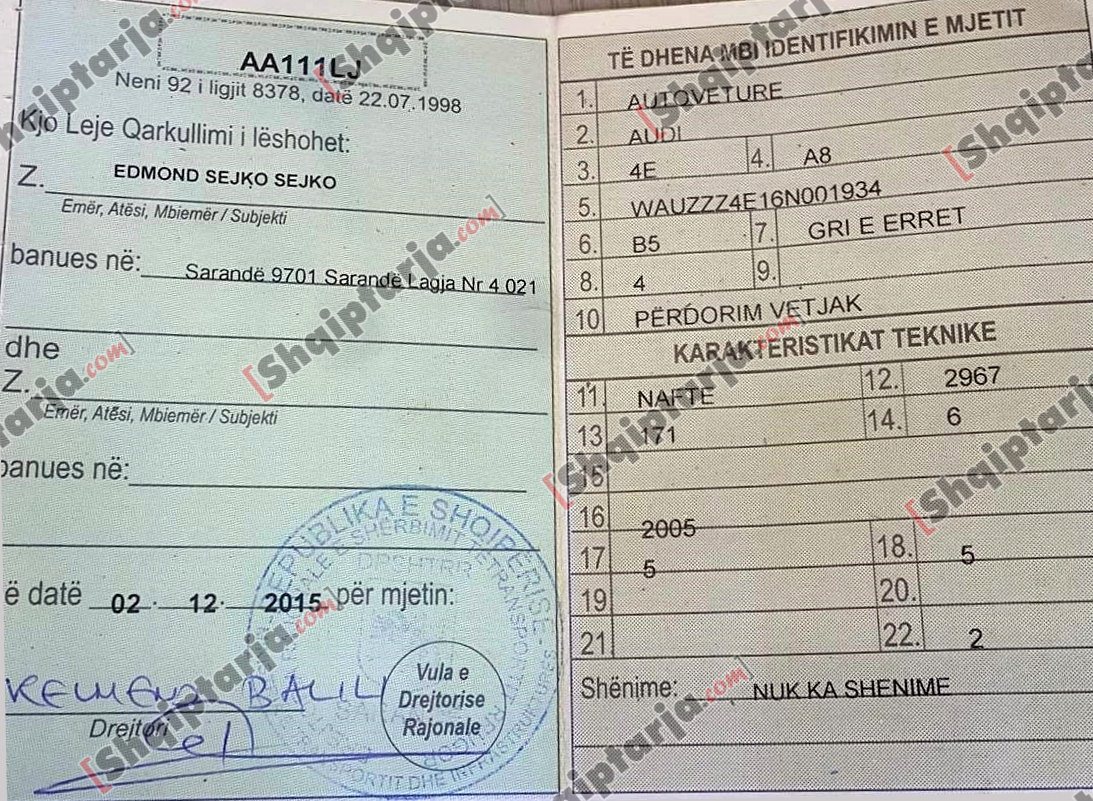 AA111LJ
Neni 92 i ligjit 8378, datë 22.07.1998
Kjo Leje Qarkullimi i lëshohet:
Z. EDMOND SEJKO SEJKO
Emër, Atësi, Mbiemër / Subjekti
banues në: Sarandë 9701 Sarandë Lagja Nr 4 021
dhe
Z.
Emër, Atësi, Mbiemër / Subjekti
banues në:
ë datë 02 . 12 . 2015 për mjetin:
KELMEND BALILI
Drejtori
Vula e
Drejtorise
Rajonale
REPUBLIKA E SHQIPËRISË
TË DHENA MBI IDENTIFIKIMIN E MJETIT
1. AUTOVETURE
2. AUDI
3. 4E 4. A8
5. WAUZZZ4E16N001934
6. B5 7. GRI E ERRET
8. 4 9.
10 PËRDORIM VETJAK
KARAKTERISTIKAT TEKNIKE
11. NAFTE 12. 2967
13 171 14. 6
15
16 2005
17 5 18. 5
19 20.
21 22. 2
Shënime: NUK KA SHENIME
[Shqiptarja.com]